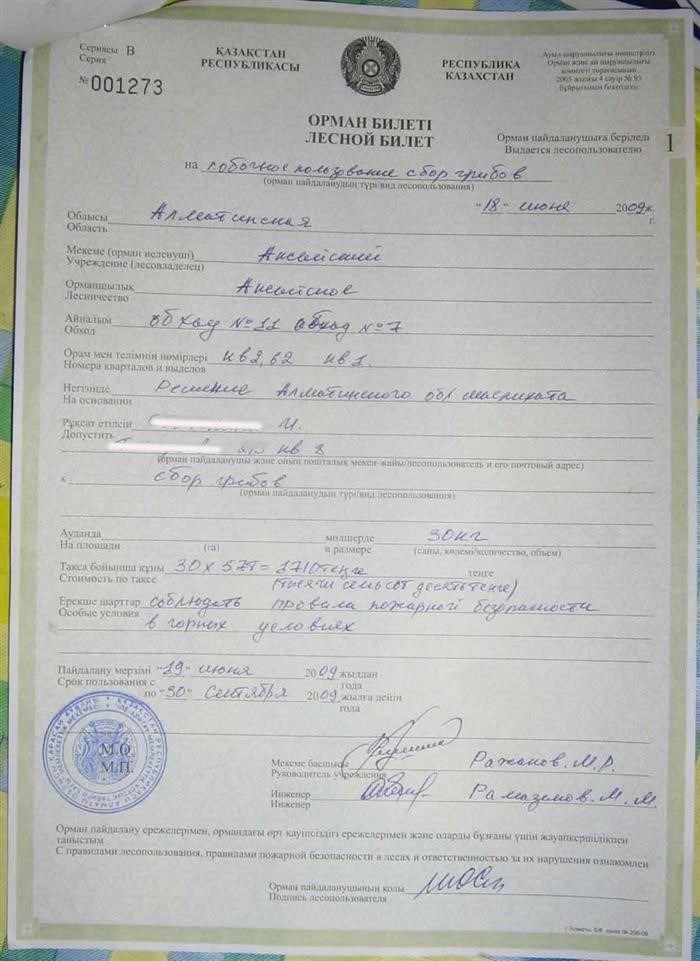 Сериясы В
Серия
№ 001273
ҚАЗАҚСТАН
РЕСПУБЛИКАСЫ
РЕСПУБЛИКА
КАЗАХСТАН
Ауыл шаруашылығы министрлігі
Орман және аң шаруашылығы
комитеті төрағасының
2005 жылғы 4 сәуір № 93
бұйрығымен бекітілген
ОРМАН БИЛЕТІ
ЛЕСНОЙ БИЛЕТ
Орман пайдаланушыға беріледі
Выдается лесопользователю
1
на побочное пользование сбор грибов
(орман пайдаланудың түрі/вид лесопользования)
"18" июня 2009ж.
г.
Облысы Алматинская
Область
Мекеме (орман иеленуші) Аксайский
Учреждение (лесовладелец)
Орманшылық Аксайское
Лесничество
Айналым обход №11 обход №7
Обход
Орам мен телімнің нөмірлері кв2,в2 кв1.
Номера кварталов и выделов
Негізінде Решение Алматинского обл маслихата
На основании
Рұқсат етілсін И.
Допустить кв 8
(орман пайдаланушы және оның пошталық мекен-жайы/лесопользователь и его почтовый адрес)
к сбор грибов
(орман пайдаланудың түрі/вид лесопользования)
Ауданда мөлшерде 30кг
На площади (га) в размере (саны, көлемі/количество, объем)
Такса бойынша құны 30 х 57т = 1710тенге теңге
Стоимость по таксе (тысячи семьсот десять тенге)
Ерекше шарттар соблюдать правила пожарной безопасности
Особые условия в горных условиях
Пайдалану мерзімі "19" июня 2009 жылдан
Срок пользования с года
по "30" Сентября 2009 жылға дейін
года
М.О.
М.П.
Мекеме басшысы Ражапов. М.Р.
Руководитель учреждения
Инженер Рамазанов. М. М.
Инженер
Орман пайдалану ережелерімен, ормандағы өрт қауіпсіздігі ережелерімен және оларды бұзғаны үшін жауапкершілікпен
таныстым
С правилами лесопользования, правилами пожарной безопасности в лесах и ответственностью за их нарушения ознакомлен
Орман пайдаланушының қолы
Подпись лесопользователя